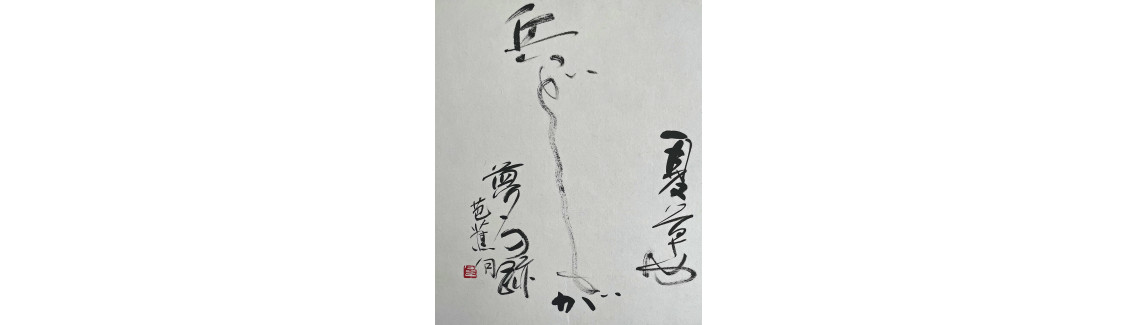 夏草や
兵どもが
夢の跡
芭蕉句